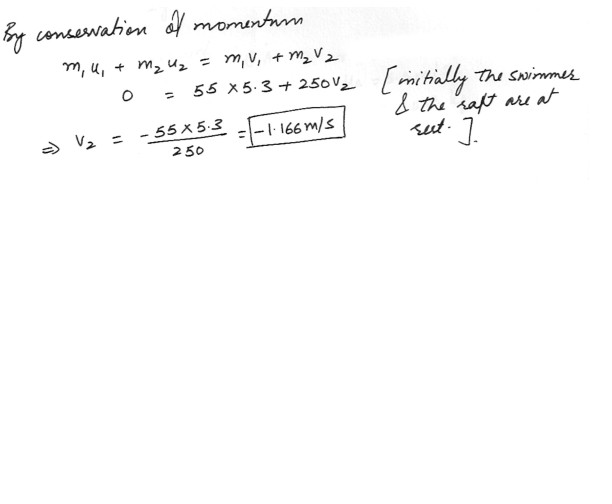 By conservation of momentum
m₁u₁ + m₂u₂ = m₁v₁ + m₂v₂
0 = 55 × 5.3 + 250v₂ [initially the swimmer & the raft are at rest.].
⇒ v₂ = -55 × 5.3 / 250 = -1.166 m/s